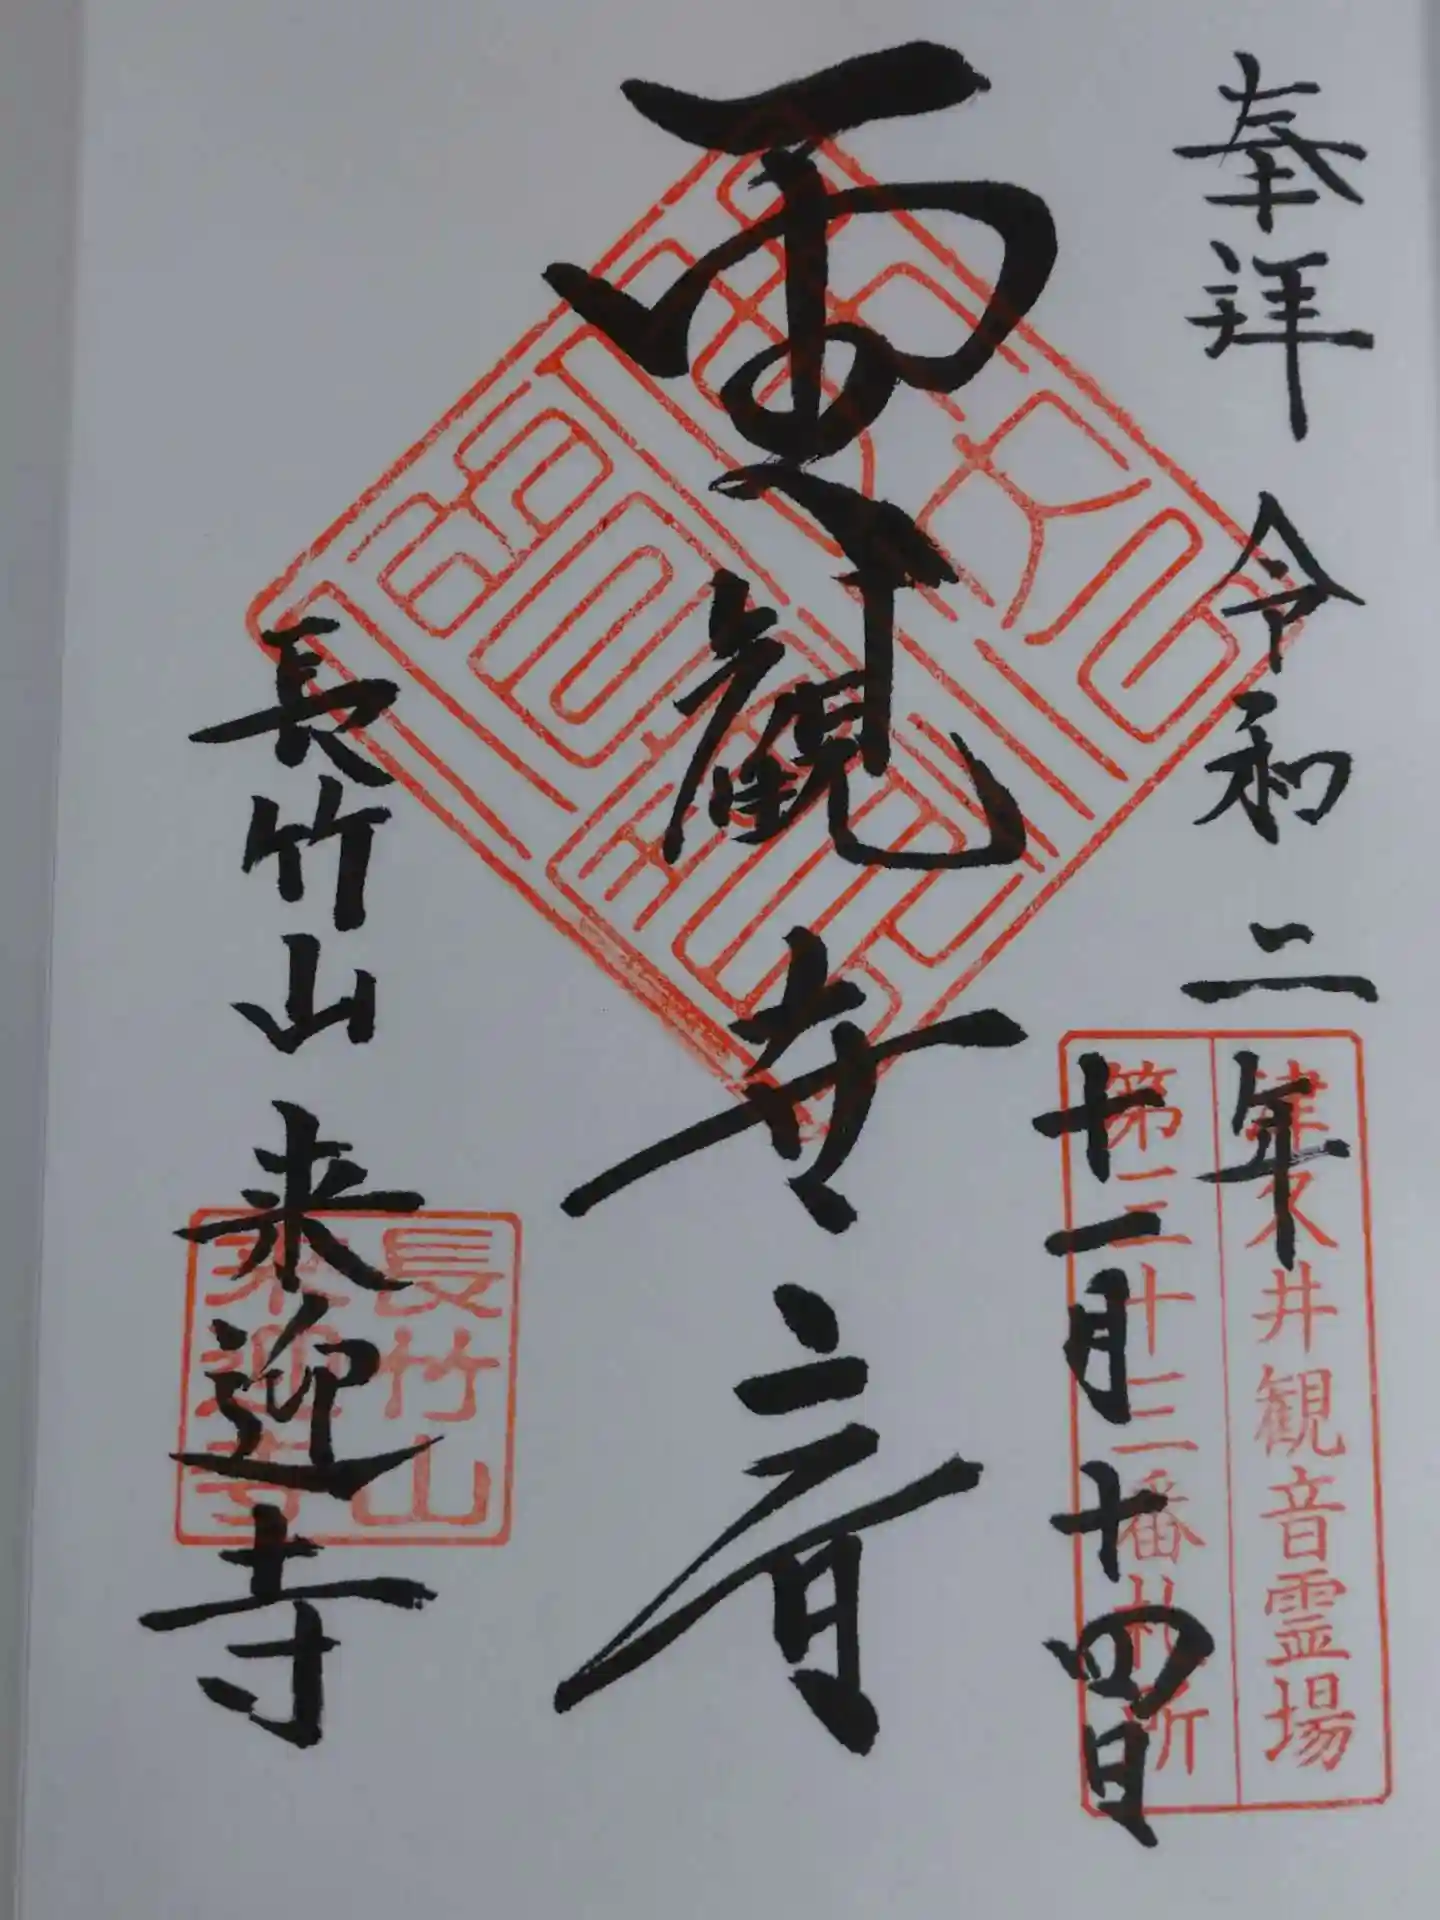 奉拝 令和二年
十一月十四日
津久井観音霊場
番札所
観世音
長竹山 来迎寺
長竹山
来迎寺